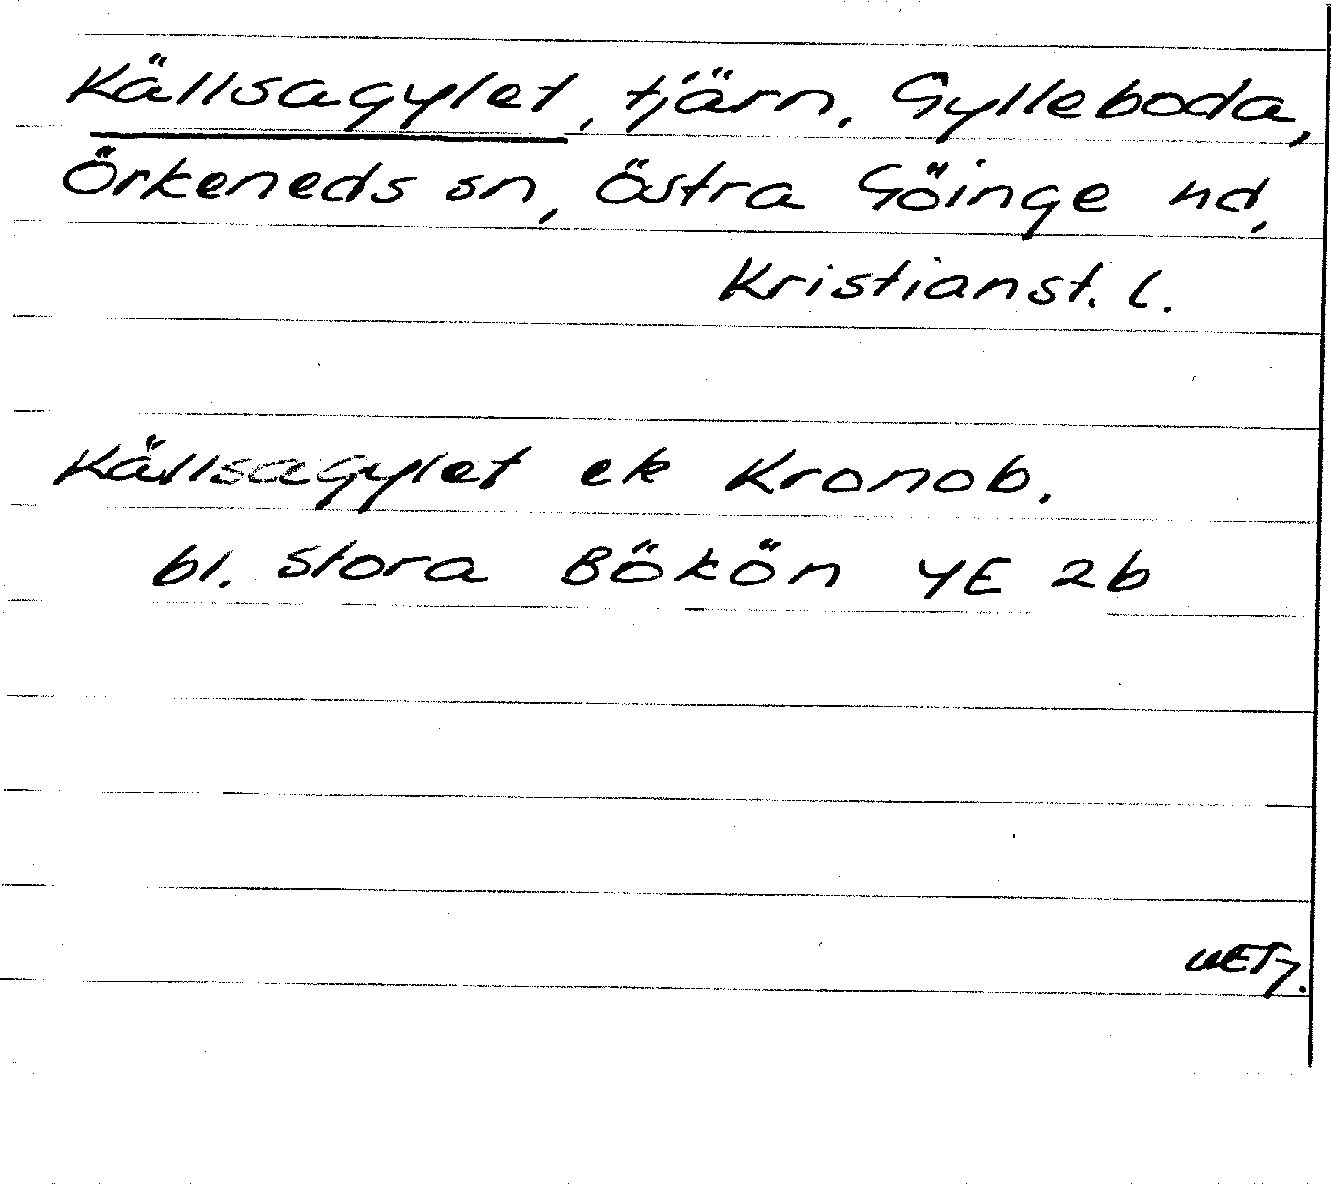 Källsagylet, tjärn. Gylleboda,
Örkeneds sn, Östra Göinge hd,
Kristianst. l.
Källsagylet ek Kronob.
bl. Stora Bökön YE 2b